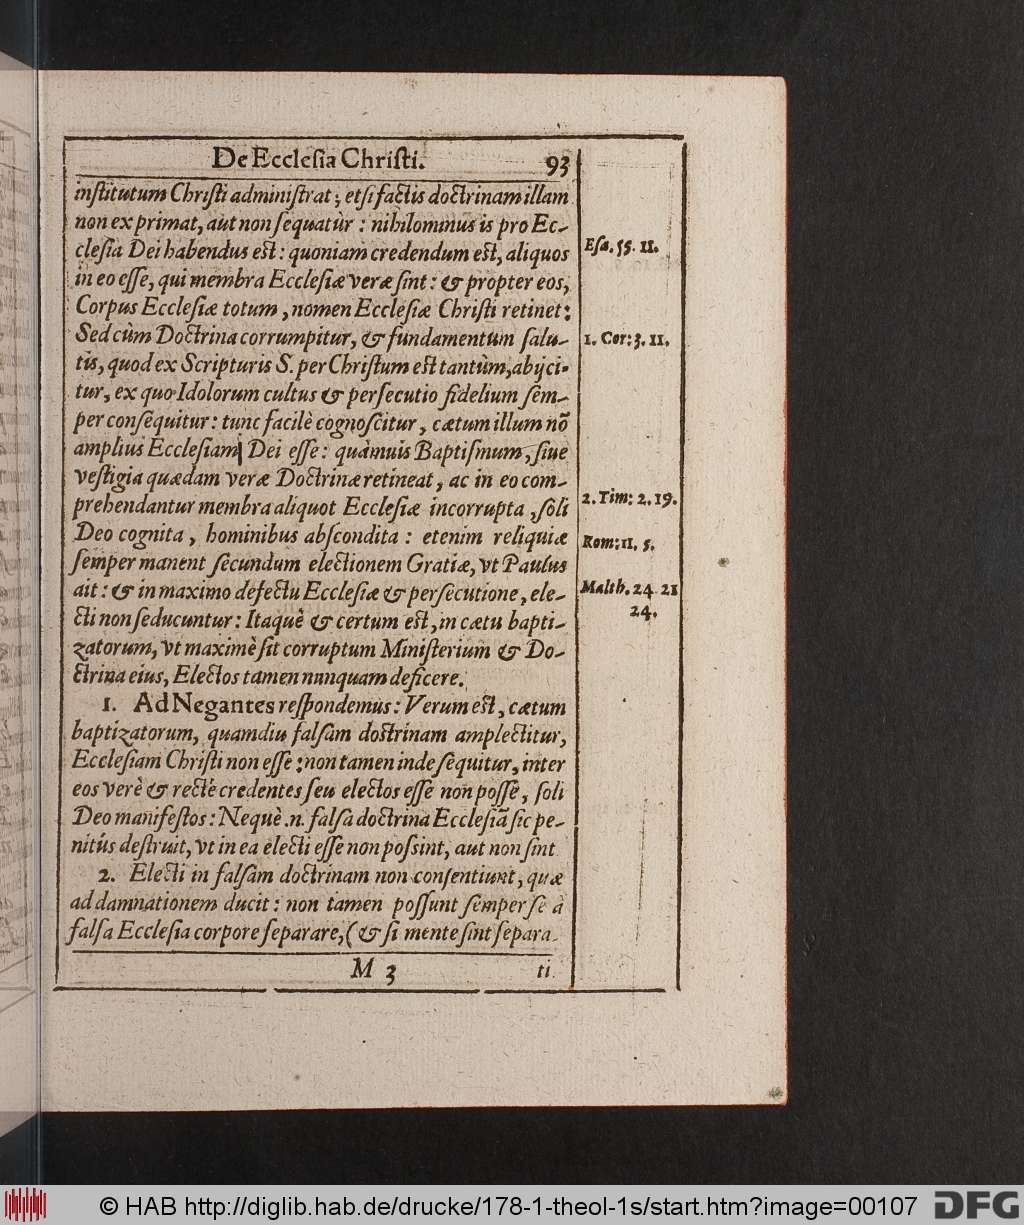 De Ecclesia Christi. 93
institutum Christi administrat; etsi factis doctrinam illam
non exprimat, aut non sequatùr : nihilominus is pro Ec-
clesia Dei habendus est: quoniam credendum est, aliquos
in eo esse, qui membra Ecclesiæ veræ sint: & propter eos,
Corpus Ecclesiæ totum, nomen Ecclesiæ Christi retinet:
Sed cùm Doctrina corrumpitur, & fundamentum salu-
tis, quod ex Scripturis S. per Christum est tantùm, abijci-
tur, ex quo Idolorum cultus & persecutio fidelium sem-
per consequitur: tunc facilè cognoscitur, cætum illum nõ
amplius Ecclesiam Dei esse: quàmuis Baptismum, siue
vestigia quædam veræ Doctrinæ retineat, ac in eo com-
prehendantur membra aliquot Ecclesiæ incorrupta, soli
Deo cognita, hominibus abscondita: etenim reliquiæ
semper manent secundum electionem Gratiæ, vt Paulus
ait: & in maximo defectu Ecclesiæ & persecutione, ele-
cti non seducuntur: Itaquè & certum est, in cætu bapti-
zatorum, vt maximè sit corruptum Ministerium & Do-
ctrina eius, Electos tamen nunquam deficere.
1. Ad Negantes respondemus: Verum est, cætum
baptizatorum, quamdiu falsam doctrinam amplectitur,
Ecclesiam Christi non esse: non tamen inde sequitur, inter
eos verè & rectè credentes seu electos esse non posse, soli
Deo manifestos: Nequè .n. falsa doctrina Ecclesiã sic pe-
nitùs destruit, vt in ea electi esse non possint, aut non sint
2. Electi in falsam doctrinam non consentiunt, quæ
ad damnationem ducit: non tamen possunt semper se à
falsa Ecclesia corpore separare, (& si mente sint separa-
M 3 ti
Esa. 55. 11.
1. Cor: 3. 11.
2. Tim: 2. 19.
Rom: 11. 5.
Matth. 24. 21
24.
© HAB http://diglib.hab.de/drucke/178-1-theol-1s/start.htm?image=00107 DFG